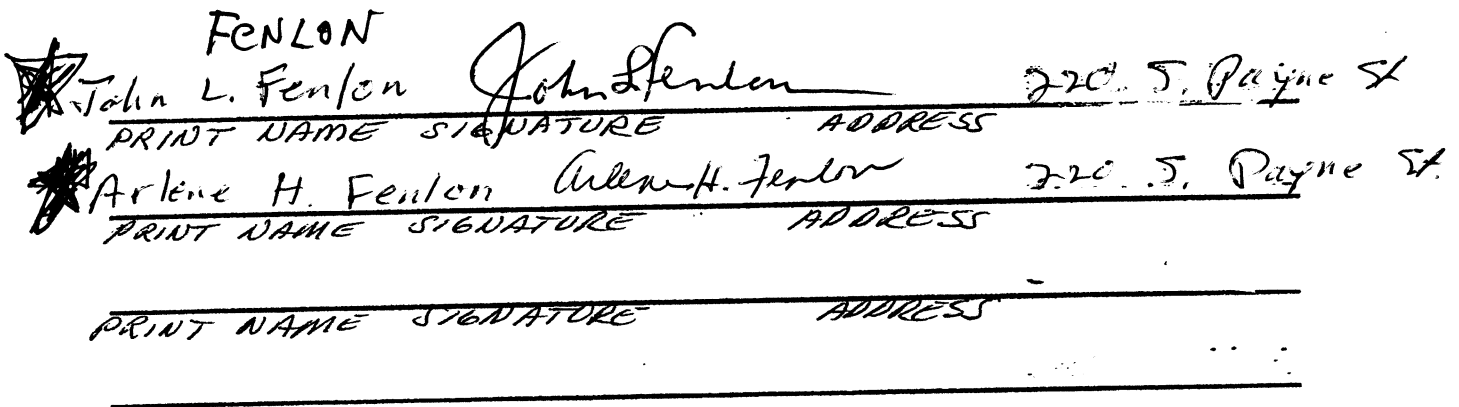 FENLON
John L. Fenlon John L Fenlon 220 S. Payne St
PRINT NAME SIGNATURE ADDRESS
Arlene H. Fenlon Arlene H. Fenlon 220 S. Payne St.
PRINT NAME SIGNATURE ADDRESS
PRINT NAME SIGNATURE ADDRESS